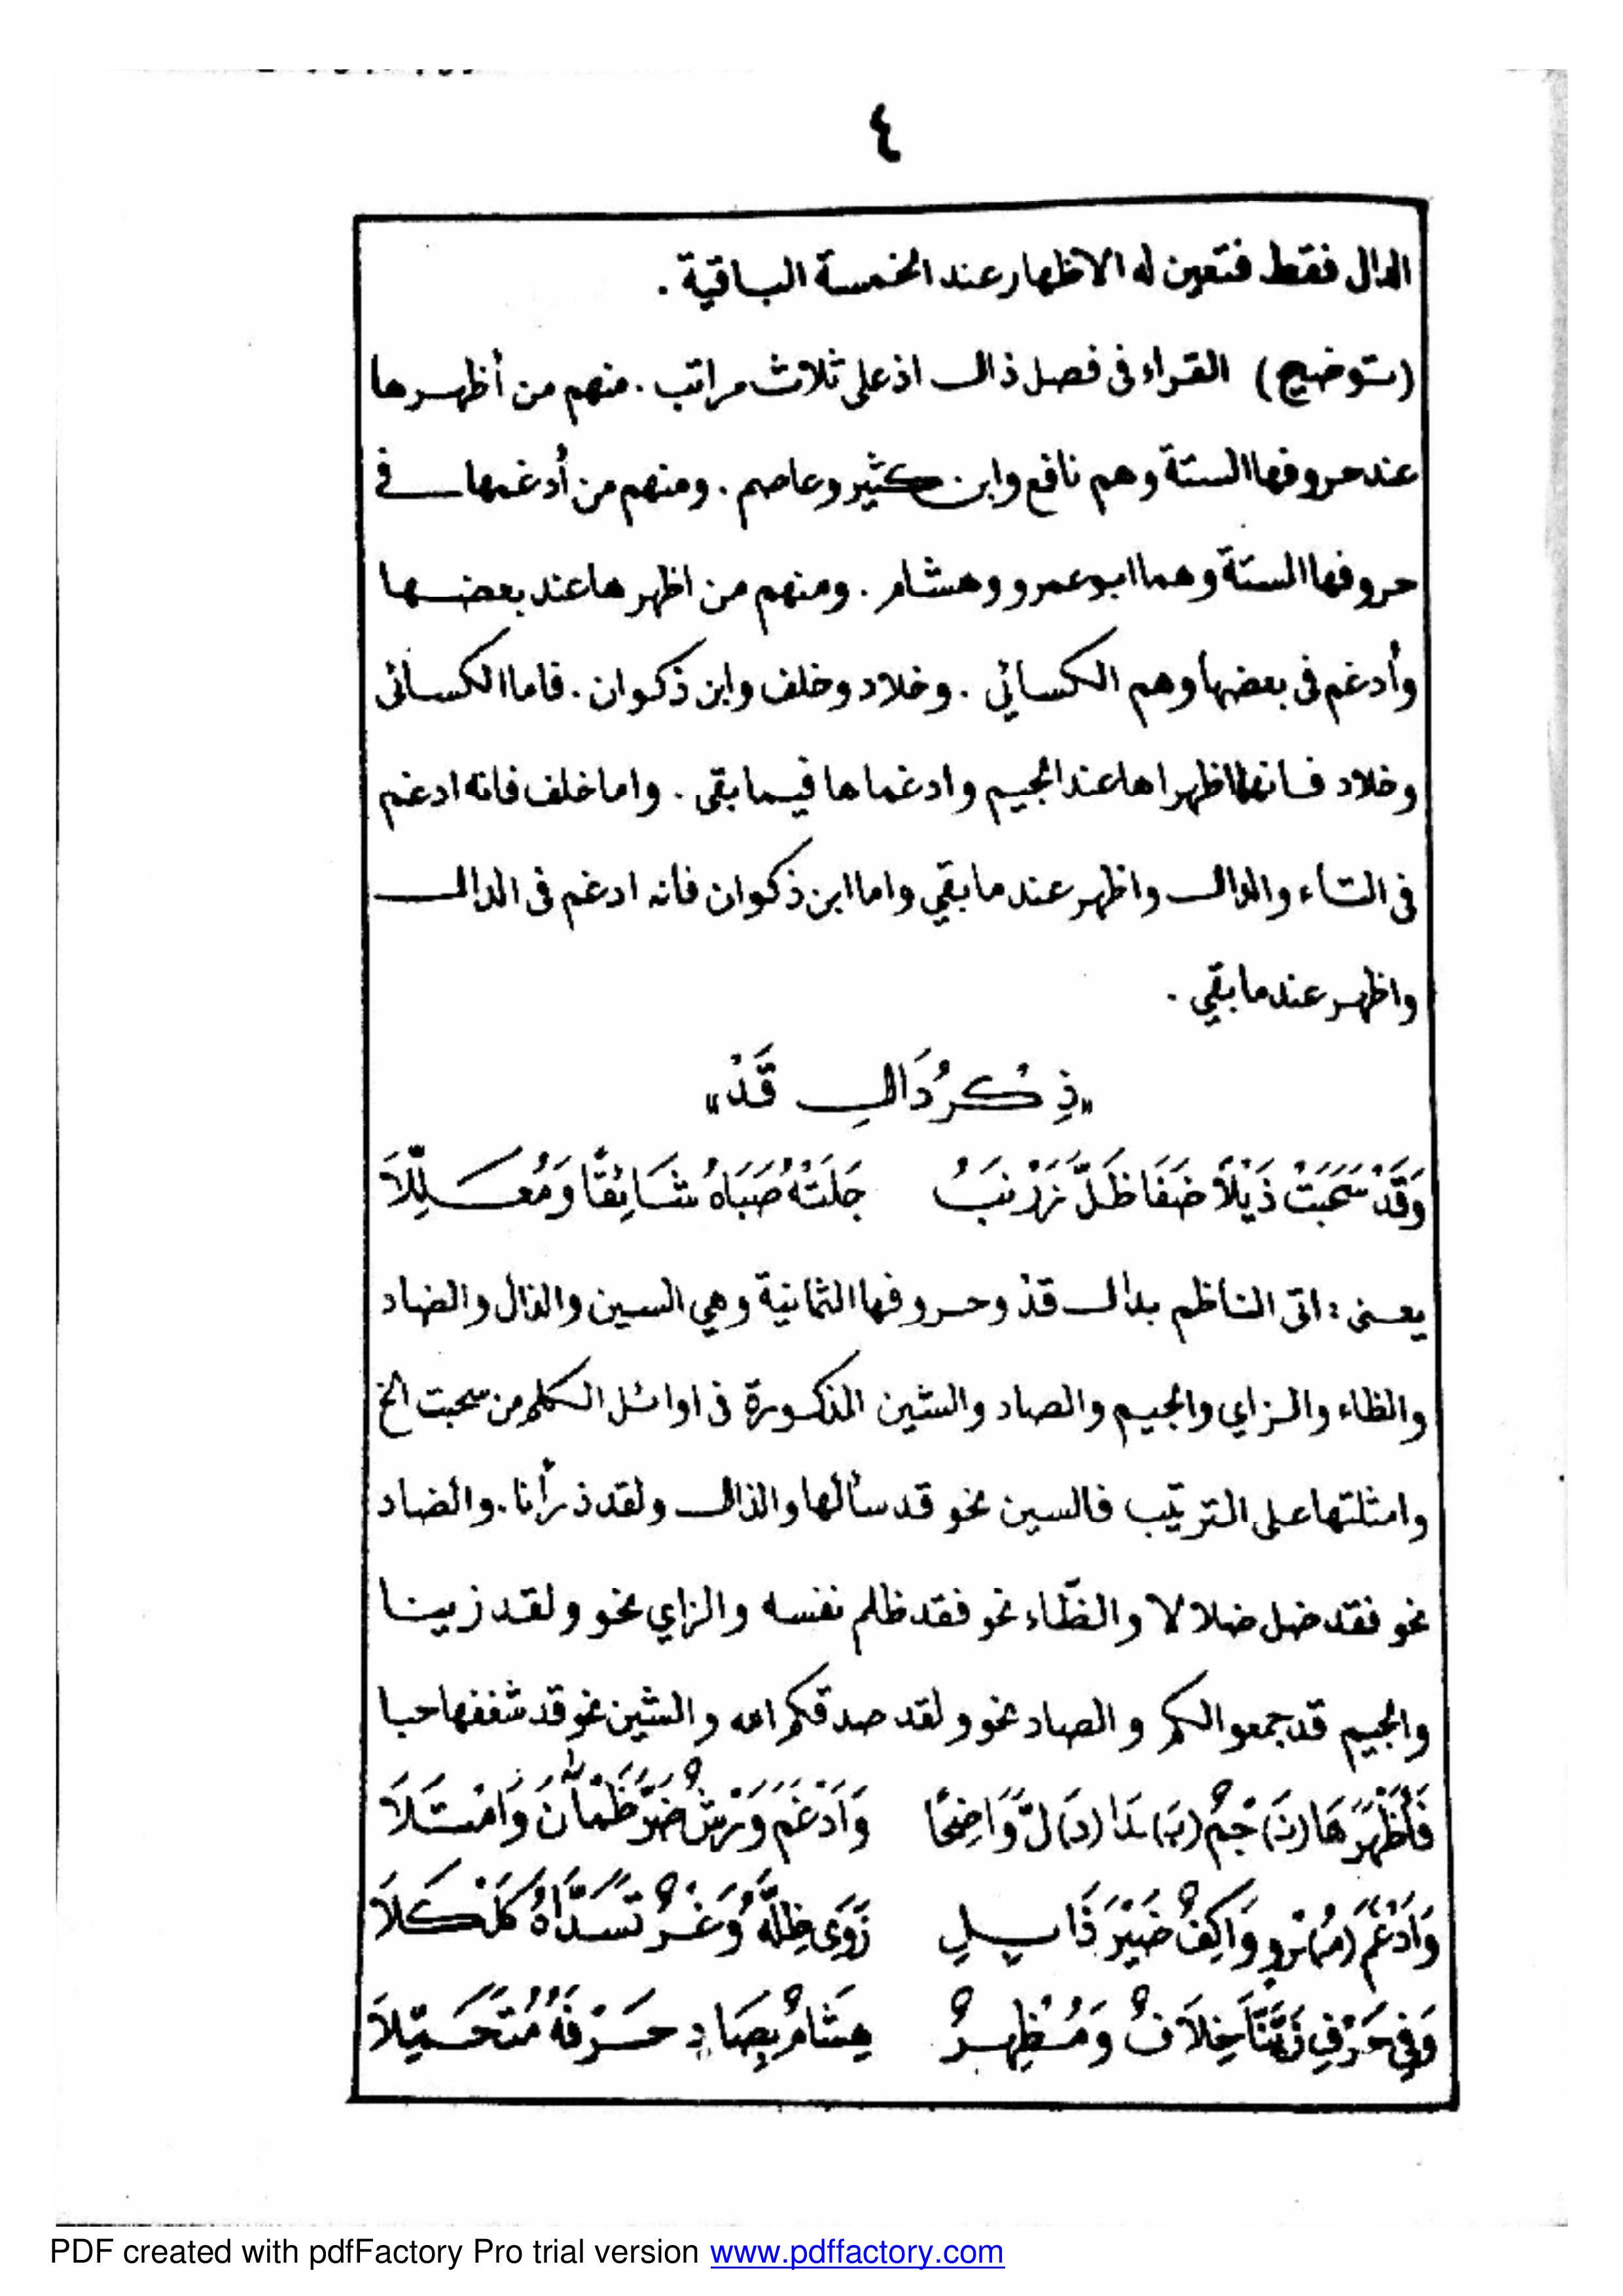 ٤
الدال فقط فتعين له الاظهار عند الخمسة الباقية .
(توضيح) القراء فى فصل ذال اذ على ثلاث مراتب . منهم من أظهرها
عند حروفها الستة وهم نافع وابن كثير وعاصم . ومنهم من أدغمها فى
حروفها الستة وهما ابو عمرو وهشام . ومنهم من اظهرها عند بعضها
وأدغم فى بعضها وهم الكسائي . وخلاد وخلف وابن ذكوان . فاما الكسائى
وخلاد فانهما اظهراها عند الجيم وادغماها فيما بقى . واما خلف فانه ادغم
فى التاء والدال واظهر عند ما بقي واما ابن ذكوان فانه ادغم فى الدال
واظهر عند ما بقي .
«ذِكْرُ دَالِ قَدْ»
وَقَدْ سَحَبَتْ ذَيْلاً ضَفَا ظَلَّ زَرْنَبُ جَلَتْهُ صَبَاهُ شَائِقًا وَمُعَلِّلاَ
يعنى : اتى الناظم بدال قد وحروفها الثمانية وهي السين والذال والضاد
والظاء والزاي والجيم والصاد والشين المذكورة فى اوائل الكلم من سحبت الخ
وامثلتها على الترتيب فالسين نحو قد سألها والذال ولقد ذرأنا . والضاد
نحو فقد ضل ضلالا والظاء نحو فقد ظلم نفسه والزاي نحو ولقد زينا
والجيم قد جمعوا لكم والصاد نحو ولقد صدقكم الله والشين نحو قد شغفها حبا
فَأَظْهَرَهَا (نَ)جْمٌ (بَ)دَا (دَ)لَّ وَاضِحًا وَادْغَمَ وَرْشٌ ضَرَّ ظَمْاٰنَ وَامْتَلاَ
وَادْغَمَ (مُ)رْوٍ وَاكِفٌ ضَيْرَ ذَابِلِ زَوَى ظِلَّهُ وَغْرٌ تَسَدَّاهُ كَلْكَلاَ
وَفِي حَرْفِ زَيَّنَّا خِلاَفٌ وَمُظْهِرٌ هِشَامٌ بِصَادٍ حَرْفَهُ مُتَحَمِّلاَ
PDF created with pdfFactory Pro trial version www.pdffactory.com